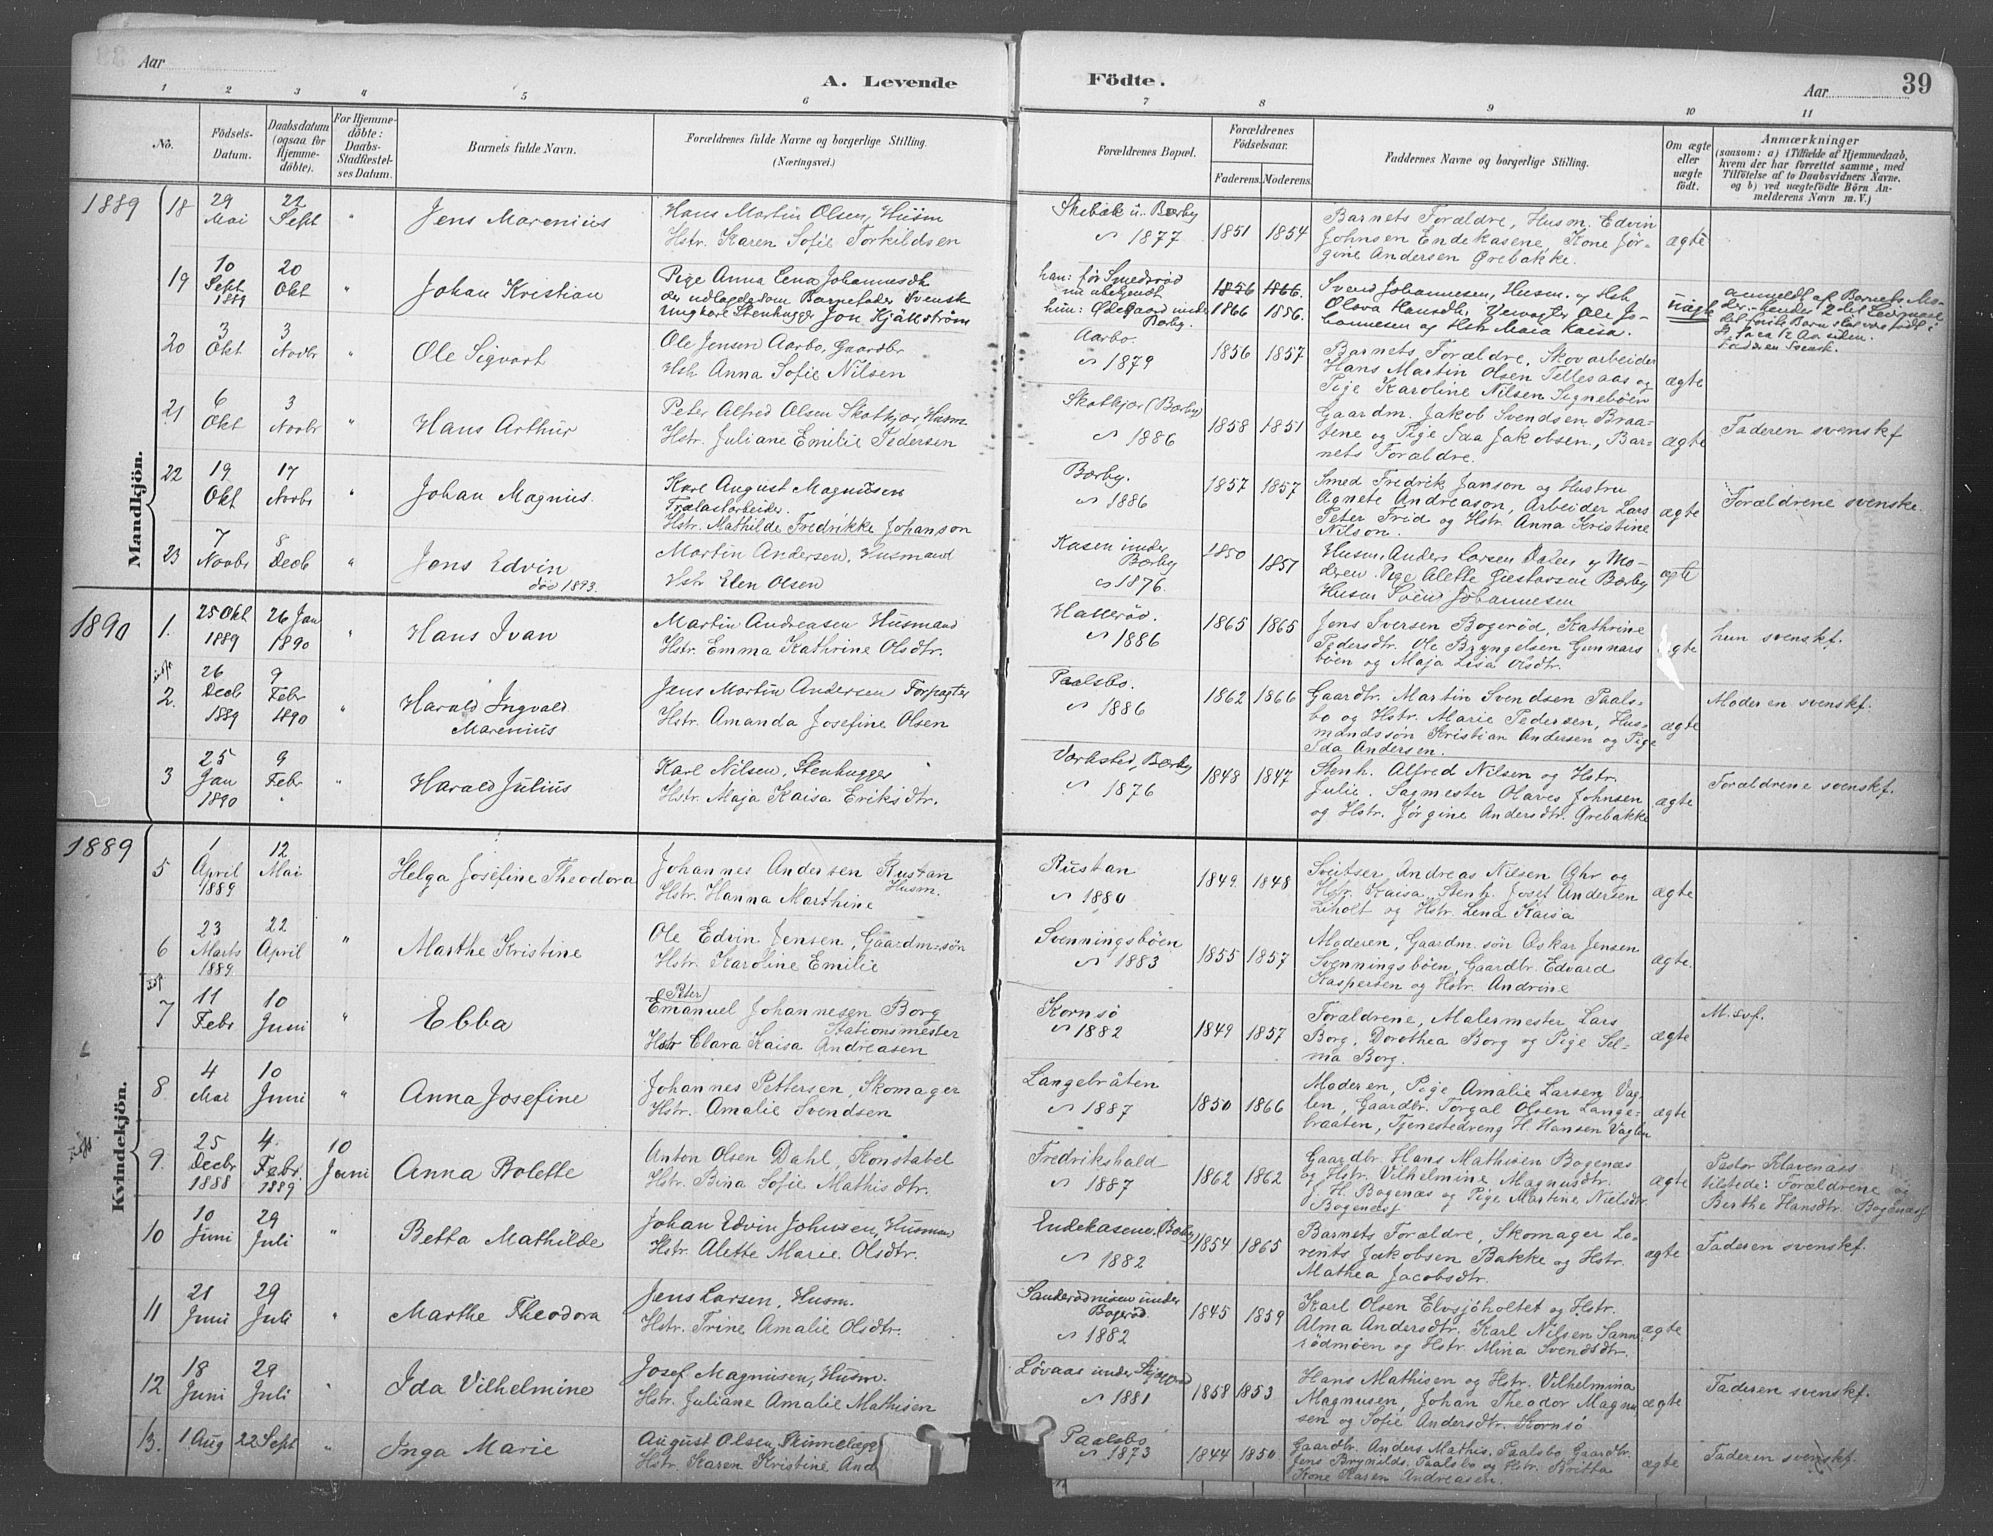 Aar
A. Levende
Födte.
Aar
39
1 2 3 4 5 6 7 8 9 10 11
No.
Födsels-
Datum.
Daabsdatum
(ogsaa for
Hjemme-
döbte).
For Hjemme-
döbte:
Daabs-
Stadfæstel-
ses Datum.
Barnets fulde Navn.
Forældrenes fulde Navne og borgerlige Stilling.
(Næringsvei.)
Forældrenes Bopæl.
Forældrenes
Födselsaar.
Faderens. Moderens.
Faddernes Navne og borgerlige Stilling.
Om ægte
eller
uægte
födt.
Anmærkninger
(saasom: a) i Tilfælde af Hjemmedaab,
hvem der har forrettet samme, med
Tilföielse af to Daabsvidners Navne,
og b) ved uægtefödte Börn An-
melderens Navn m. V.)
Mandkjön.
1889
18
29
Mai
22
Sept
"
Jens Marenius
Hans Martin Olsen, Husm
Hstr. Karen Sofie Torkildsen
Skebæk u. Børby
~ 1877
1851 1854
Barnets Forældre, Husm. Edvin
Johnsen Endekasene, Kone Jør-
gine Andersen Ørebakke.
ægte
19
10
Sept
1889
20
Okt
"
Johan Kristian
Pige Anna Lena Johannesdt
der udlagde som Barnefader Svensk
Ungkarl Stenhugger Jon Hjällström
han: før Smedsrød
nu ubekjendt
hun: Ødegaard under
Børby.
1856 1866
1866 1856
Svend Johannesen, Husm. og Hstr
Olava Hansdtr,
Johannesen og Hstr Maia Kaisa.
uægte
anmeldt af Barnets Mo-
der
Faderen Svensk.
20
3
Okt
3
Novbr
"
Ole Sigvart
Ole Jensen Aarbo, Gaardbr
Hstr Anna Sofie Nilsen
Aarbo.
~ 1879
1856 1857
Barnets Forældre, Skovarbeider
Hans Martin Olsen Tellesaas og
Pige Karoline Nilsen Signebøen
ægte
21
6
Okt
3
Novbr
"
Hans Arthur
Peter Alfred Olsen Skotkjør, Husm
Hstr. Juliane Emilie Pedersen
Skotkjør (Børby)
~ 1886
1858 1851
Gaardm. Jakob Svendsen Braa-
tene og Pige Ida Jakobsen, Bar-
nets Forældre.
ægte
Faderen svenskf
22
19
Okt
17
Novbr
"
Johan Magnus.
Karl August Magnusen
Trælastarbeider.
Hstr. Mathilde Fredrikke Johanson
Børby.
~ 1886
1857 1857
Smed Fredrik Janson og Hustru
Agnete Andreason, Arbeider Lars
Peter Frid og Hstr. Anna Kristine
Nilson.
ægte
Forældrene svenske.
23
7
Novbr
8
Decb
"
Jens Edvin
død 1893.
Martin Andersen, Husmand
Hstr Elen Olsen
Kasen under
Børby
~ 1876.
1850 1857
Husm. Anders Larsen Dalen og Mo-
deren. Pige Alette Gustavsen Børby
Husm Svend Johannesen
ægte
1890
1.
25 Okt
1889
26 Jan
1890
"
Hans Ivan
Martin Andreasen Husmand
Hstr. Emma Kathrine Olsdtr.
Hallerød.
~ 1886
1865 1865
Jens Iversen Bogerød, Kathrine
Pedersdtr. Ole Bryngelsen Gunnars
bøen og Maja Lisa Olsdtr.
ægte
hun svenskf.
2.
26
Decb
1889
9
Febr
1890
"
Harald Ingvald
Marenius
Jens Martin Andersen Forpagter
Hstr. Amanda Josefine Olsen
Paalsbo.
~ 1886
1862 1866
Gaardbr. Martin Svendsen Paals-
bo og Hstr. Marie Pedersen, Hus-
mandssøn Kristian Andersen og Pige
Ida Andersen.
ægte
Moderen svenskf.
3
25
Jan
1890
9
Febr
"
"
Harald Julius
Karl Nilsen, Stenhugger
Hstr. Maja Kaisa Eriksdtr.
Værksted, Børby
~ 1876
1848 1847
Stenh. Alfred Nilsen og Hstr.
Julie. Sagmester Olaves Johnsen
og Hstr. Jørgine Andersdtr. Ørebakke
ægte
Forældrene svenskf.
Kvindekjön.
1889
5
1
April
1889
12
Mai
Helga Josefine Theodora
Johannes Andersen Rustan
Husm.
Hstr. Hanna Marthine
Rustan
~ 1880
1849. 1848
Sveitser Andreas Nilsen Ghr og
Hstr. Kaisa, Stenh. Josef Andersen
Liholt og Hstr. Lena Kaisa
ægte
6
23
Marts
1889.
22
April
"
Marthe Kristine
Ole Edvin Jensen, Gaardm.søn
Hstr. Karoline Emilie
Svenningsbøen
~ 1883
1855 1857
Moderen, Gaardm. søn Oskar Jensen
Svenningsbøen, Gaardbr. Edvard
Kaspersen og Hstr. Andrine
ægte.
7
11
Febr
10
Juni
"
Ebba
(Peter)
Emanuel Johannesen Borg
Stationsmester
Hstr Clara Kaisa Andreasen
Kornsø
~ 1882
1849 1857
Forældrene, Malermester Lars
Borg, Dorothea Borg og Pige Sel-
ma Borg.
ægte
M. svf.
8
4
Mai
10
Juni
"
Anna Josefine
Johannes Pettersen, Skomager
Hstr. Amalie Svendsen
Langebråten
~ 1887
1850 1866
Moderen, Pige Amalie Larsen Vag-
len, Gaardbr. Torgal Olsen Lange-
braaten, Tjenestedreng H. Hansen Vaglen
ægte
9.
25
Decbr
1888
4.
Febr
1889
10
Juni
Anna Bolette
Anton Olsen Dahl, Konstabel
Hstr. Bina Sofie Mathisdtr.
Fredrikshald
~ 1887
1862 1862
Gaardbr. Hans Mathisen Bogenæs
og Hstr. Vilhelmine Magnusdtr.
H. Bogenæs og Pige Martine Nielsdtr
Bogenæs
ægte
Pastor Klavenæss
tilstede: Forældrene og
Berthe Hansdtr. Bogenæs
10
10
Juni
29
Juli
"
Betta Mathilde
Johan Edvin Johnsen, Husman
Hstr. Alette Marie Olsdtr.
Endekasene, (Børby
~ 1882
1854 1865
Barnets Forældre, Skomager Lo-
rents Jakobsen Bakke og Hstr.
Mathea Jacobsdtr.
ægte
Faderen svenskf.
11
21
Juni
29
Juli
"
Marthe Theodora
Jens Larsen, Husm.
Hstr. Trine Amalie Olsdtr.
Sanderødmosen under
Bogerød
~ 1882
1845 1859
Karl Olsen Elvsjøholtet og Hstr.
Alma Andersdtr. Karl Nilsen San-
rødmøen og Hstr. Mina Svendsdtr.
ægte
12
18
Juni
29
Juli
"
Ida Vilhelmine
Josef Magnusen, Husm.
Hstr. Juliane Amalie Mathisen
Løvaas under
~ 1881
1858 1853
Hans Mathisen og Hstr. Vilhelmina
Magnusen, Johan Theodor Magnu
sen og Sofie Andersdtr. Kornsø
ægte
Faderen svenskf.
13.
1 Aug
22 Sept
"
Inga Marie
August Olsen,
Hstr. Karen Kristine And
Paalsbo
~ 1873
1844 1850
Gaardbr. Anders Mathis. Paalsbo, Gaardbr.
Jens Brynilds. Paalsbo og Hstr. Britta
Kone Karen Andreasen.
ægte
Faderen svenskf.